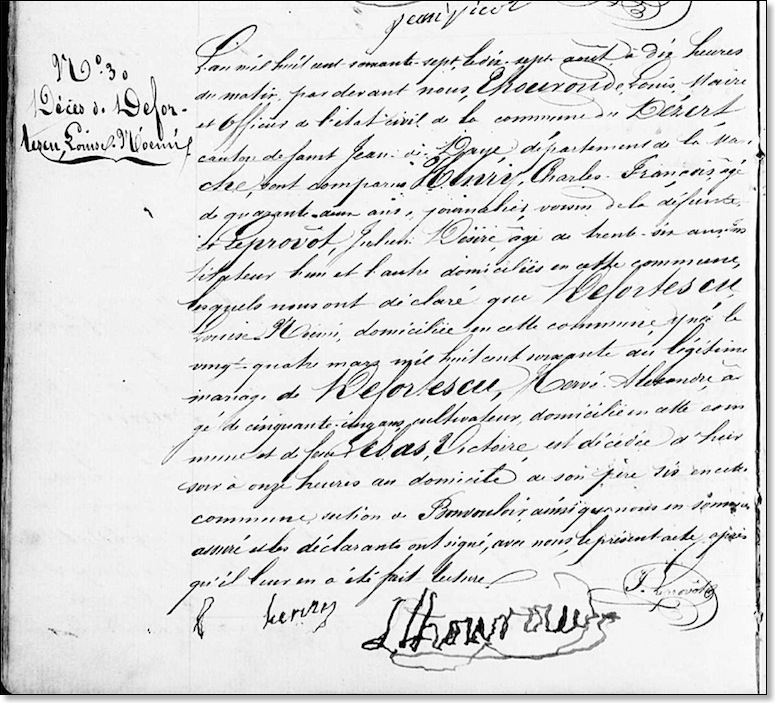 N° 30
Décès de Defor-
tescu, Louise Noémi
L'an mil huit cent soixante-sept, le dix-sept août à dix heures
du matin, par devant nous, Lhouroude Louis, Maire
et Officier de l'état civil de la commune du Dézert
canton de saint Jean de Daye département de la Man-
che, sont comparus Henry, Charles-François, âgé
de quarante-deux ans, journalier, voisin de la défunte,
et Leprovôt, Julien Désiré âgé de trente-six ans,
l'un et l'autre domiciliés en cette commune,
lesquels nous ont déclaré que Defortescu,
Louise Noémi, domiciliée en cette commune y née le
vingt-quatre mars mil huit cent soixante du légitime
mariage de Defortescu, Hervé-Alexandre, â-
gé de cinquante-cinq ans, cultivateur, domicilié en cette com
mune et de feue Lebas, Victoire est décédée d'hier
soir à onze heures au domicile de son père sis en cette
commune, section de Bonvouloir, ainsi que nous en sommes
assuré et les déclarants ont signé, avec nous, le présent acte, après
qu'il leur en a été fait lecture.
henry
J. Leprovôt
Lhouroude